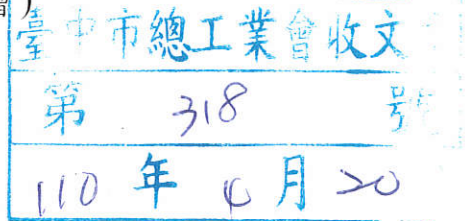 臺中市總工業會收文
第 318 號
110 年 4 月 20